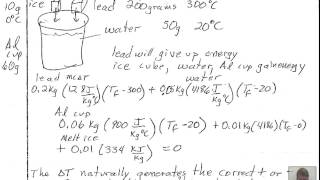 10g ice lead 200grams 300°C
0°C
water 50g 20°C
Al cup 60g
lead will give up energy
ice cube, water, Al cup gain energy
lead mcΔT water
0.2kg (128 J/kg°C)(TF-300) + 0.05kg (4186 J/kg°C)(TF-20)
Al cup
0.06kg (900 J/kg°C)(TF-20) + 0.01kg (4186)(TF-0)
Melt ice
+ 0.01 (334 kJ/kg) = 0
The ΔT naturally generates the correct + or -